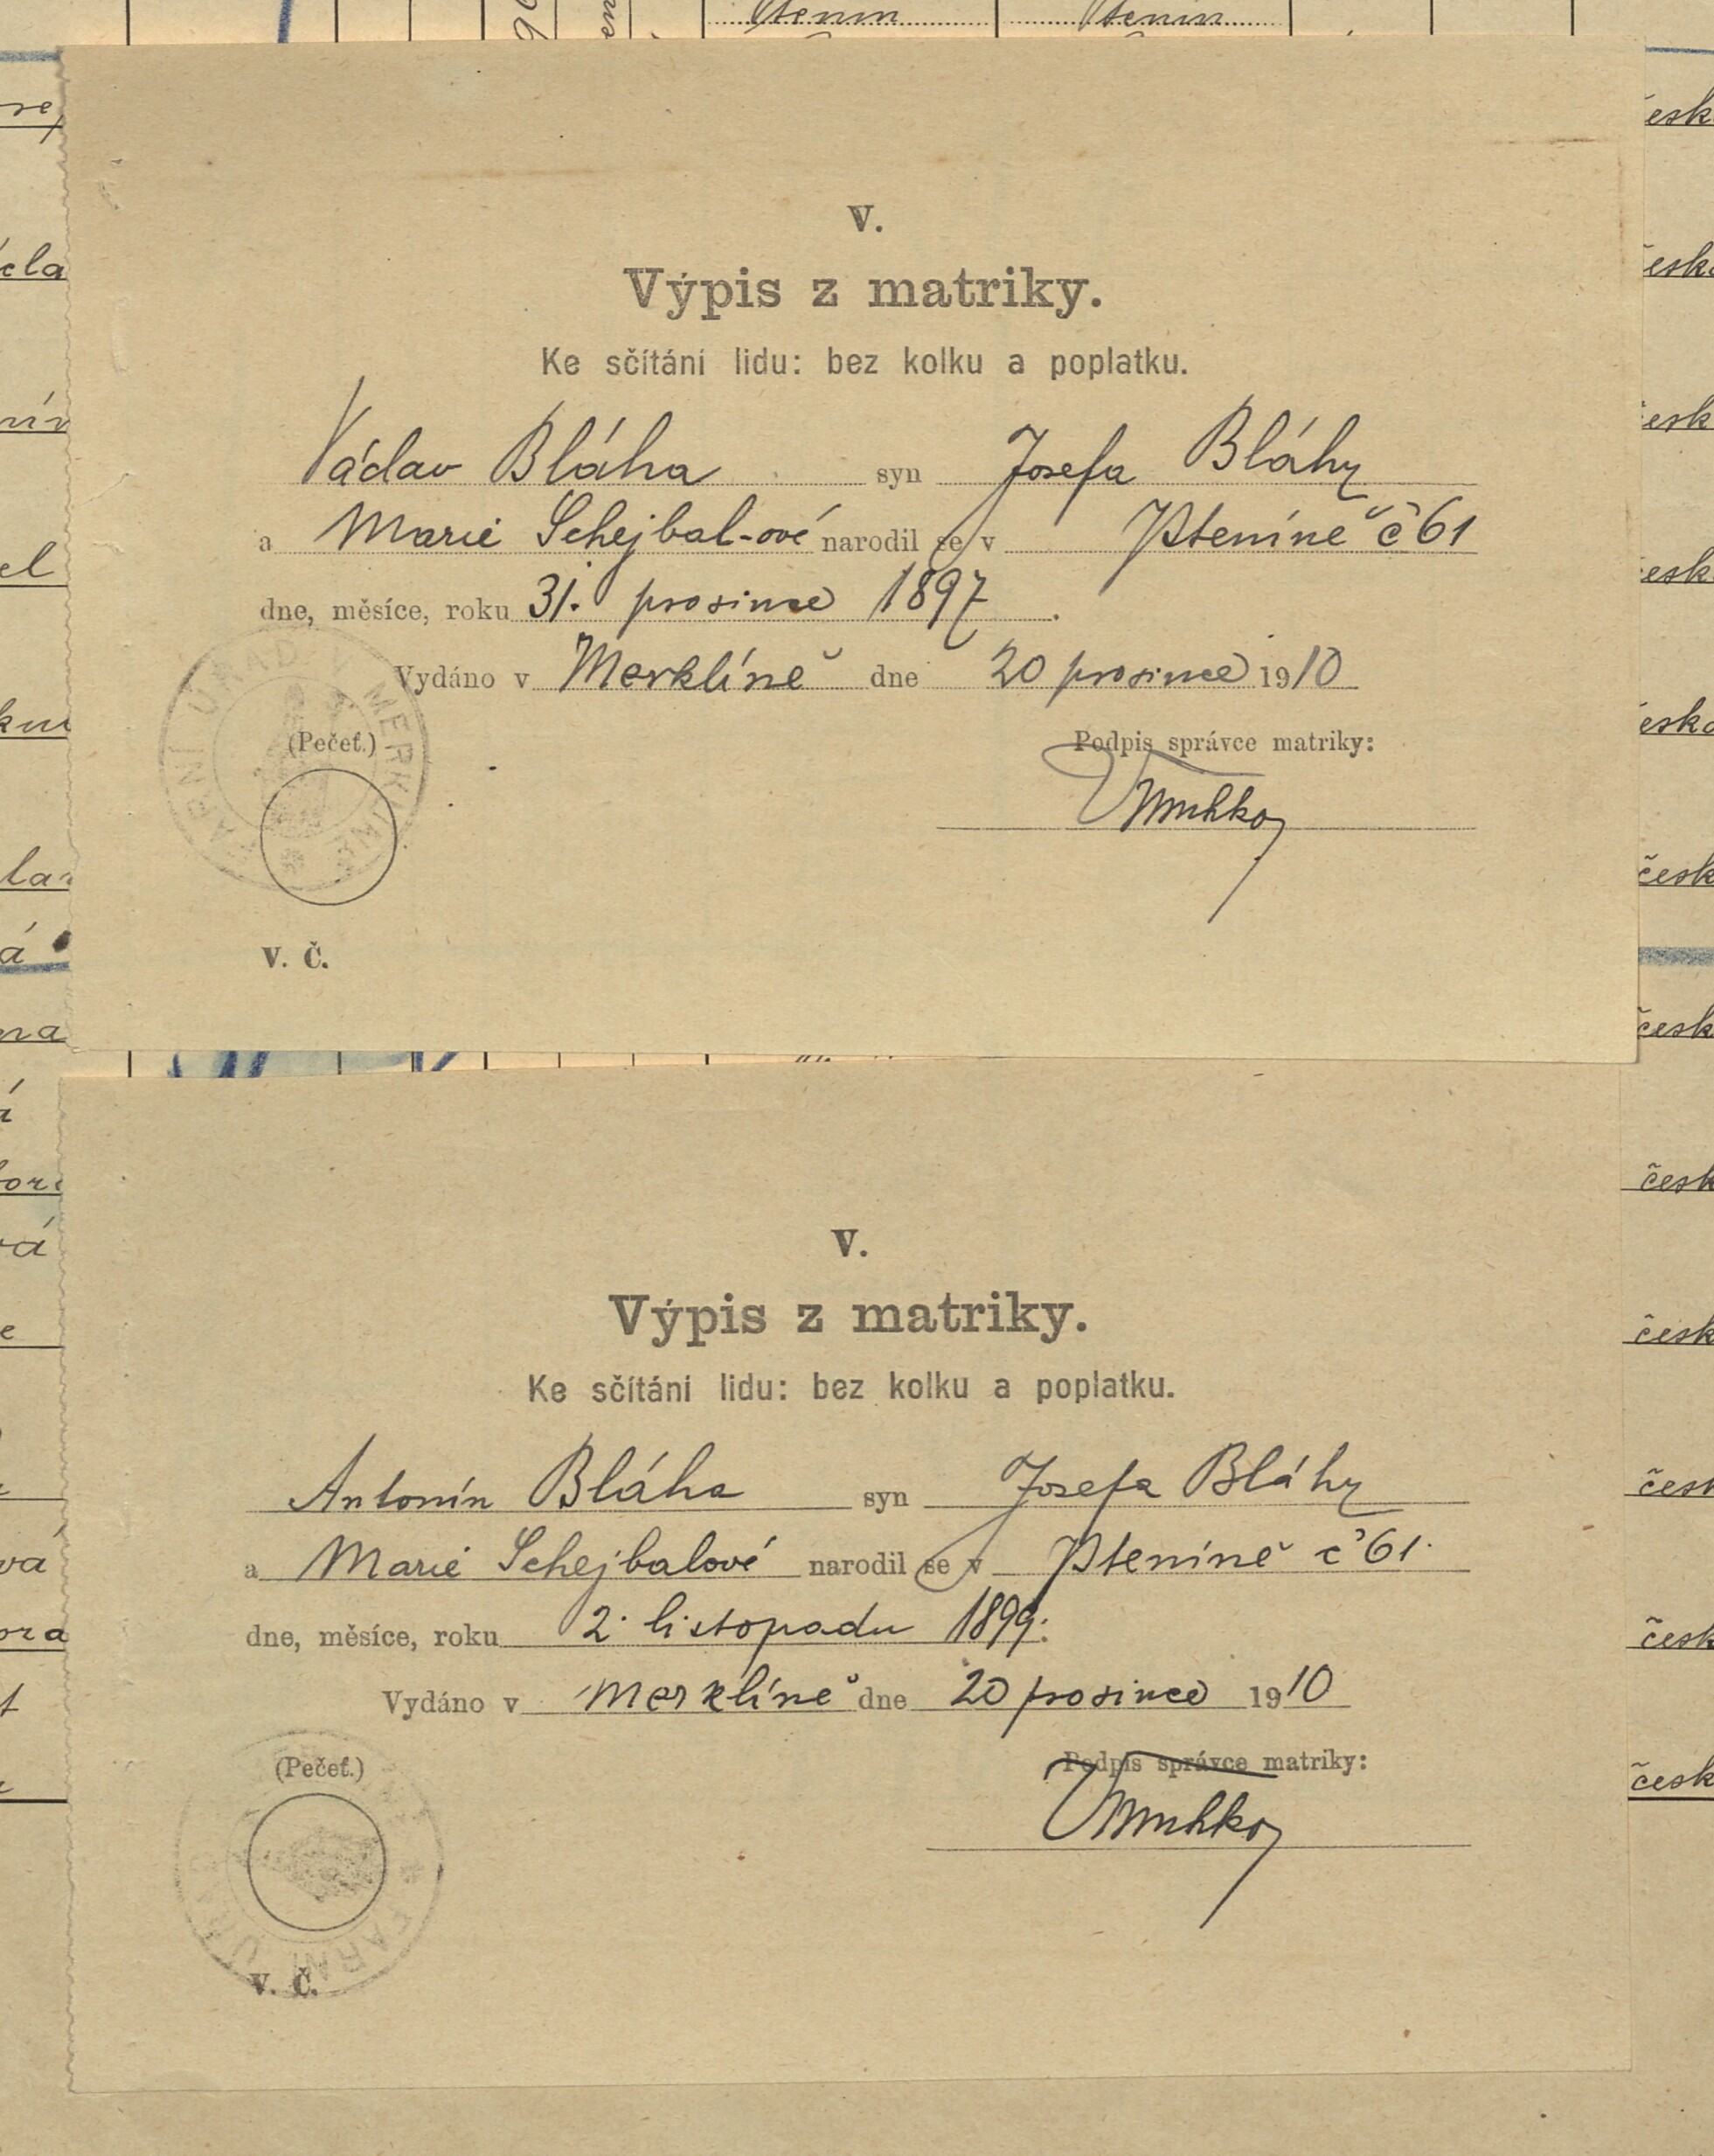 Ptenín Ptenín
V.
Výpis z matriky.
Ke sčítání lidu: bez kolku a poplatku.
Václav Bláha syn Josefa Bláhy
a Marie Schejbal-ové narodil se v Pteníně č 61
dne, měsíce, roku 31. prosince 1897.
Vydáno v Merklíně dne 20 prosince 1910
(Pečeť.) Podpis správce matriky:
FARNÍ ÚŘAD V MERKLÍNĚ
V. Č.
V.
Výpis z matriky.
Ke sčítání lidu: bez kolku a poplatku.
Antonín Bláha syn Josefa Bláhy
a Marie Schejbalové narodil se v Pteníně č 61.
dne, měsíce, roku 2. listopadu 1899.
Vydáno v Merklíně dne 20 prosince 1910
(Pečeť.) Podpis správce matriky:
FARNÍ ÚŘAD
V. Č.